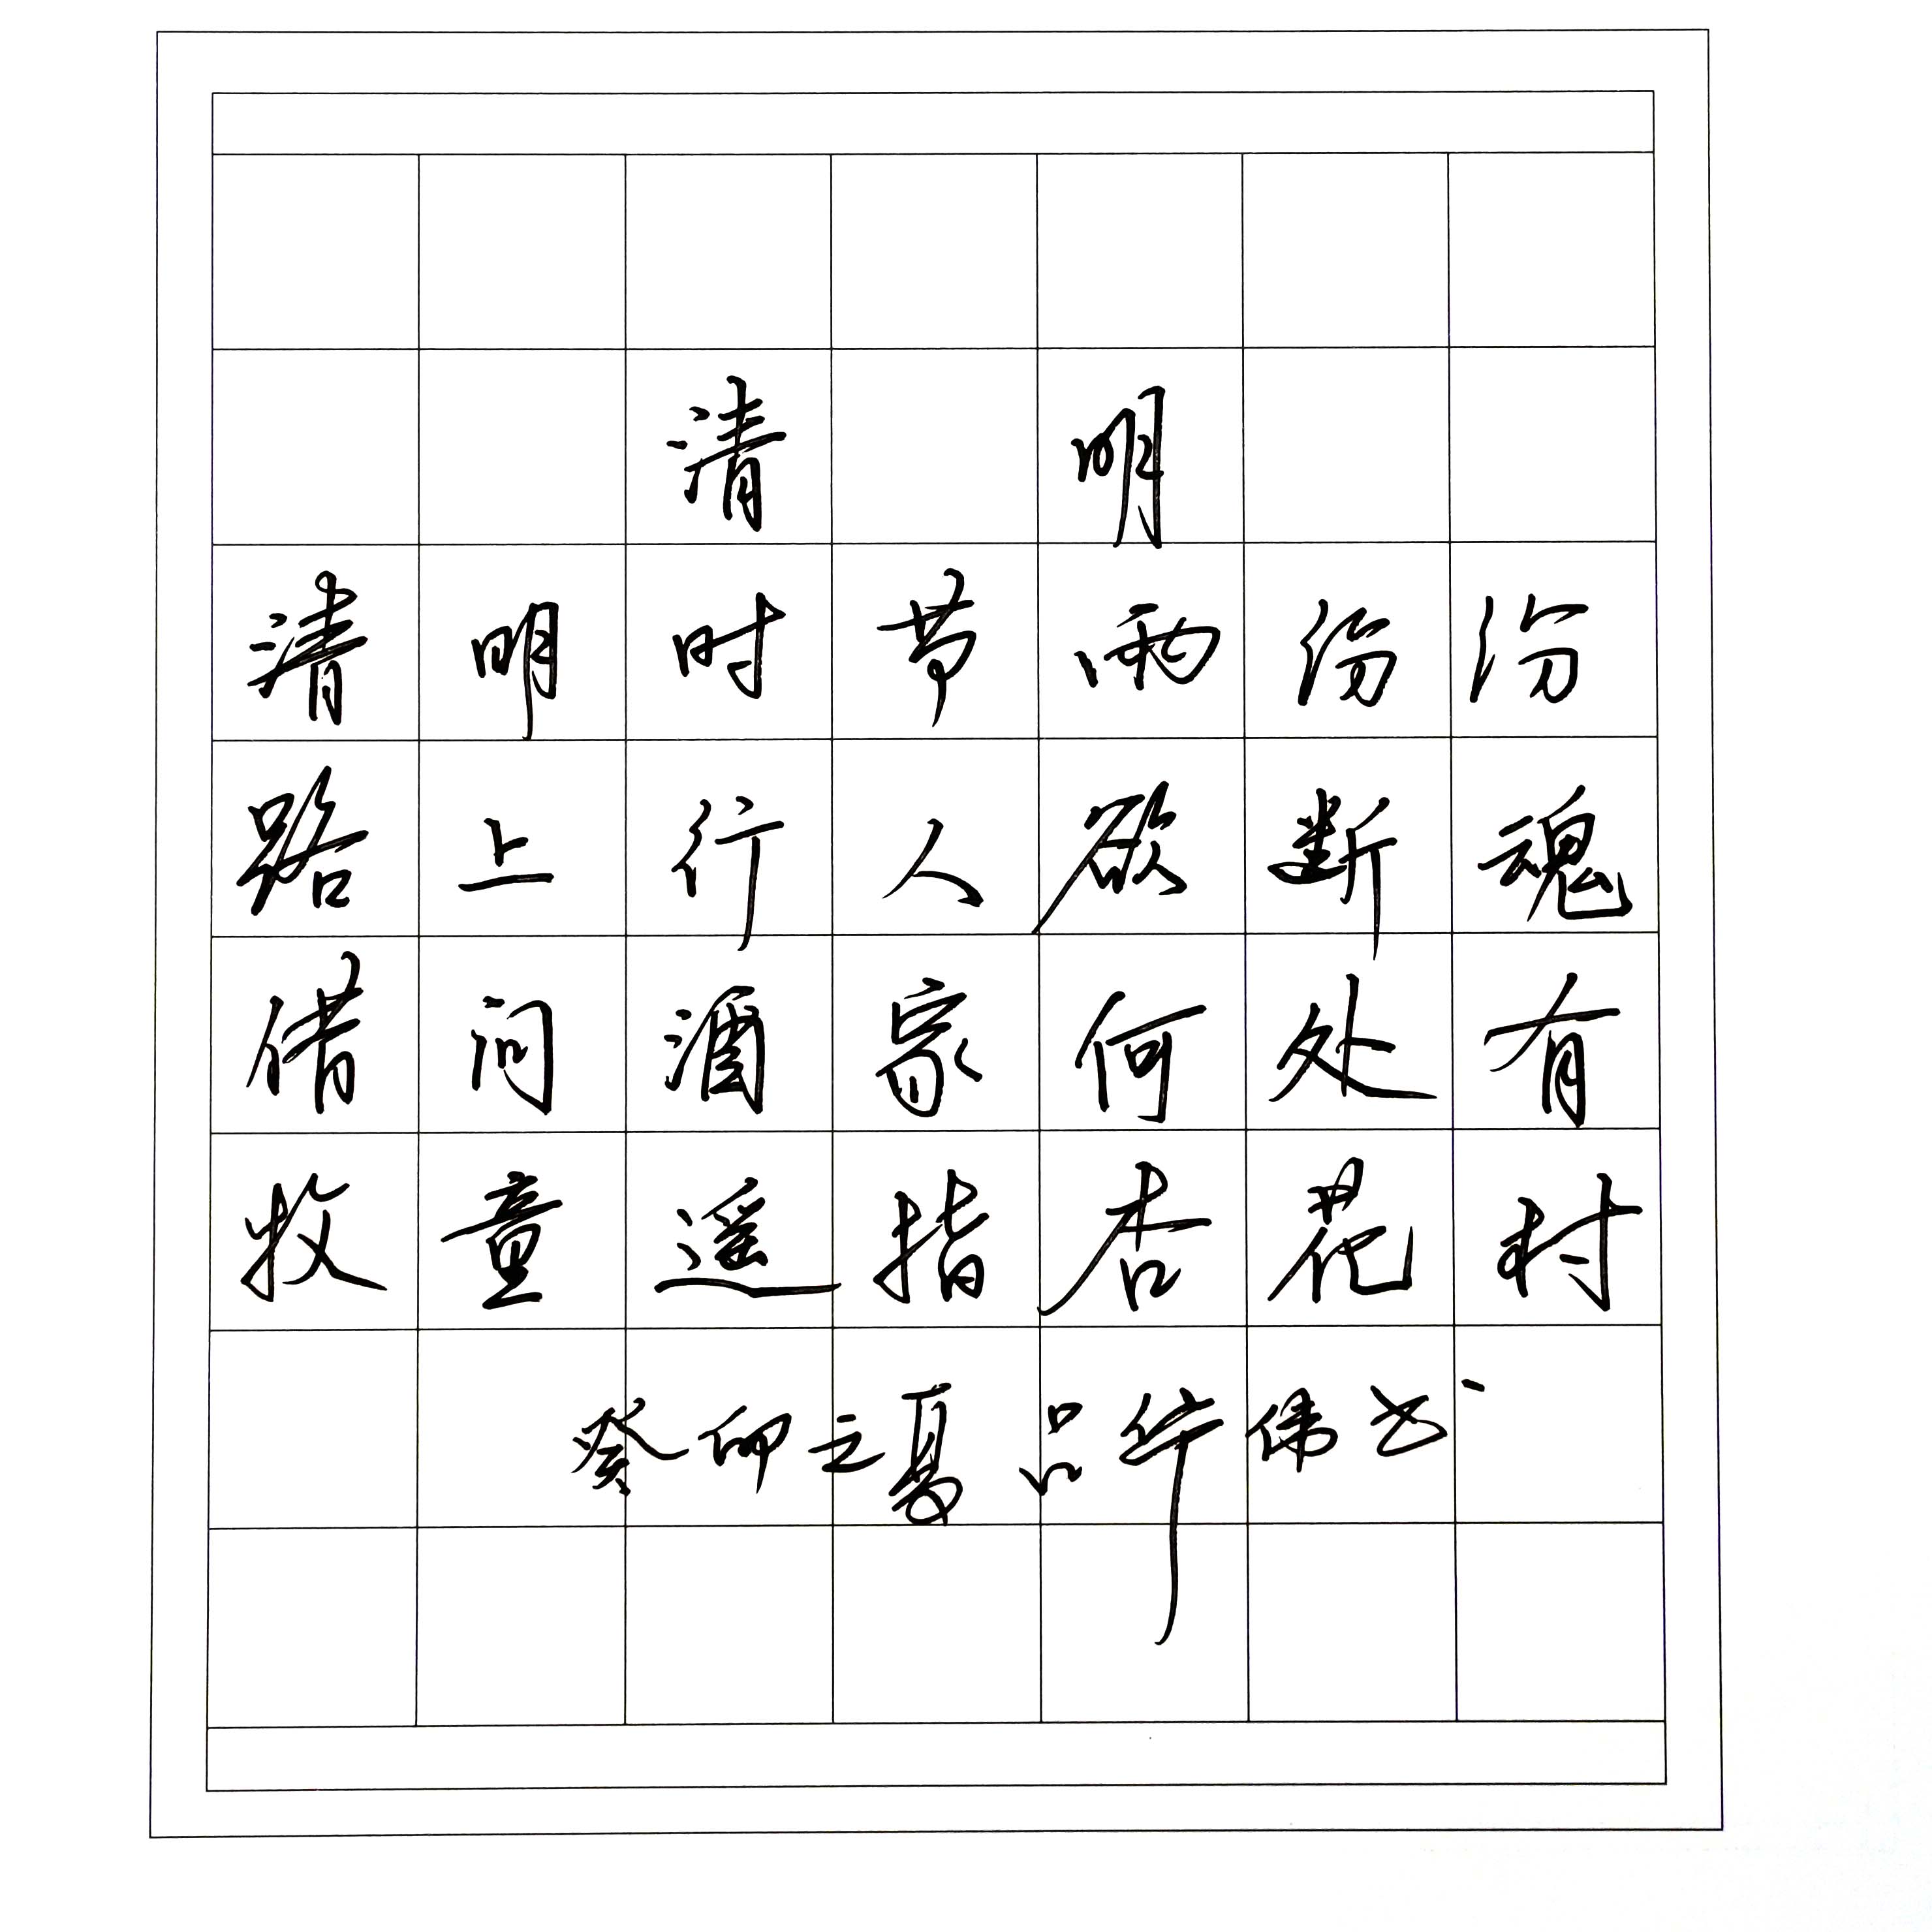 清 明
清明时节雨纷纷
路上行人欲断魂
借问酒家何处有
牧童遥指杏花村
癸卯之夏 吕伟书